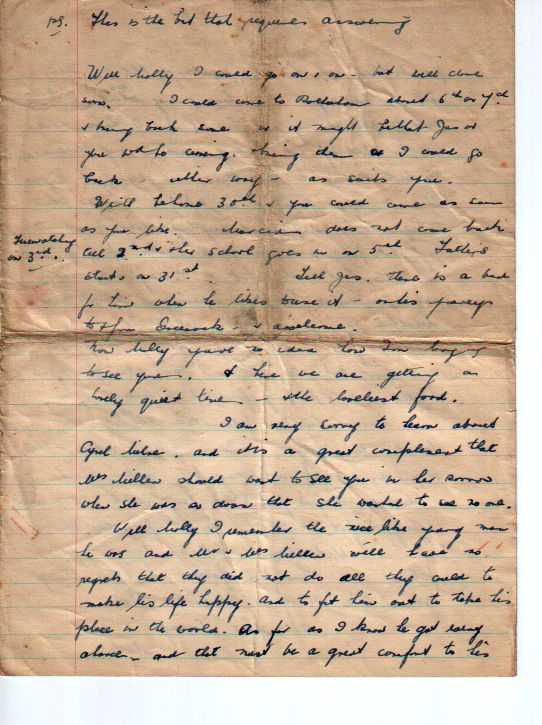 P.S. This is the bit that requires answering
Well Molly I could go on & on - but will close
soon. I could come to Rothesay about 6th or 7th
& bring back some or it might
coming. bring them as I could go
back - either way - as suits you.
Will be home 30th & you could come as soon
as you like. does not come back
till 2nd & her school goes in on 5th
on 3rd.
starts on 31st. Tell Jas. there is a bed
for him when he likes to use it - on his journeys
to & from Greenock - & welcome.
Now Molly you've no idea how I'm longing
to see you. & here we are getting a
lovely quiet time - & the loveliest food.
I am very sorry to hear about
Cyril and it's a great compliment that
Mrs Millen should want to see you in her sorrow
when she was so down that she wanted to see no one.
Well Molly I remember the nice like young man
he was and Mr & Mrs Millen will have no
regrets that they did not do all they could to
make his life happy. and to fit him out to take his
place in the world. As far as I know he got every
chance - and that must be a great comfort to his